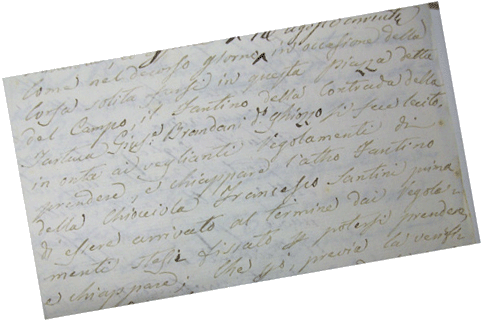 come nel decorso giorno in occasione della
Corsa solita farsi in questa Piazza detta
del Campo, il Fantino della Contrada della
Tartuca Gius.e Brandani Ghiozzo si fece lecito,
in onta ai veglianti regolamenti di
prendere, e chiappare l'altro Fantino
della Chiocciola Francesco Santini prima
di essere arrivato al termine dai regola=
menti stessi fissato p potersi prendere,
e chiappare; Che p di previa la